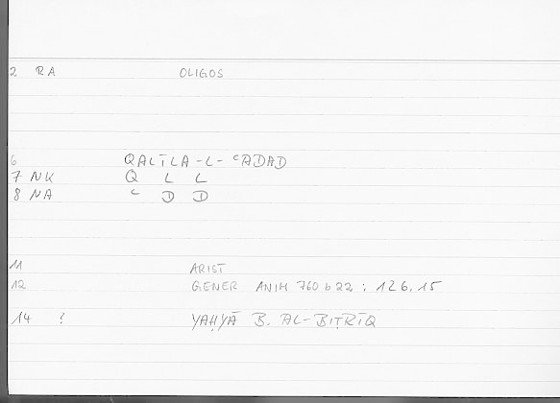 2 RA OLIGOS
6 QALĪLA-L-ʿADAD
7 NK Q L L
8 NA ʿ D D
11 ARIST
12 GENER ANIM 760 b 22 ; 126.15
14 ? YAḤYĀ B. AL-BIṬRĪQ